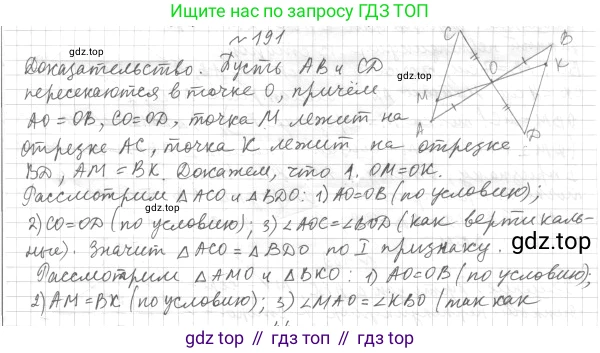 Ищите нас по запросу ГДЗ ТОП
№191
C
B
K
O
M
A
D
gdz.top
Доказательство. Пусть AB и CD
пересекаются в точке O, причём
AO = OB, CO = OD, точка M лежит на
отрезке AC, точка K лежит на отрезке
BD, AM = BK. Докажем, что 1. OM = OK.
Рассмотрим △ACO и △BDO: 1) AO = OB (по условию);
2) CO = OD (по условию); 3) ∠AOC = ∠BOD (как вертикаль-
ные). Значит △ACO = △BDO по I признаку.
gdz.top
Рассмотрим △AMO и △BKO: 1) AO = OB (по условию);
2) AM = BK (по условию); 3) ∠MAO = ∠KBO (так как
gdz.top // gdz.top // gdz.top // gdz.top